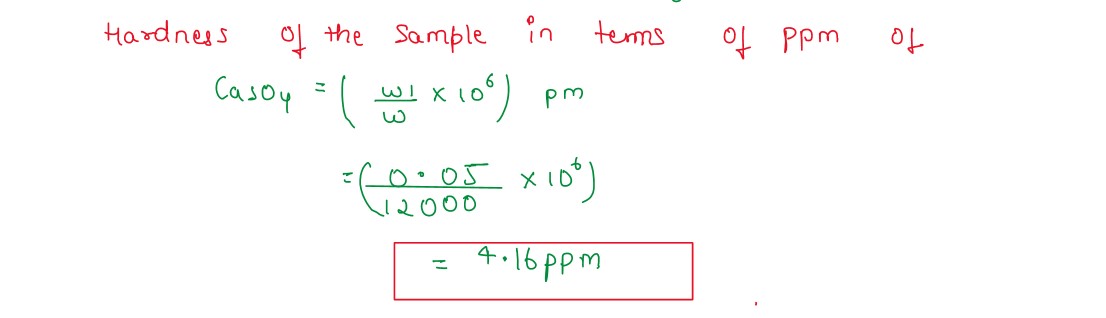 Hardness of the Sample in terms of ppm of
CaSO4 = ( w1/w × 10^6 ) pm
= ( 0.05/12000 × 10^6 )
= 4.16 ppm